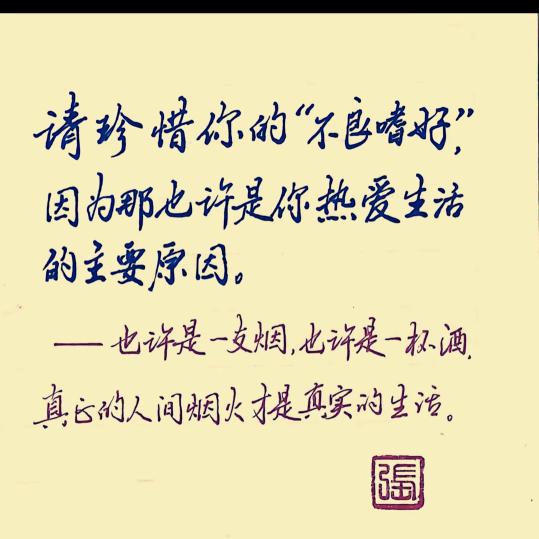 请珍惜你的“不良嗜好”，
因为那也许是你热爱生活
的主要原因。
——也许是一支烟，也许是一杯酒，
真正的人间烟火才是真实的生活。
張